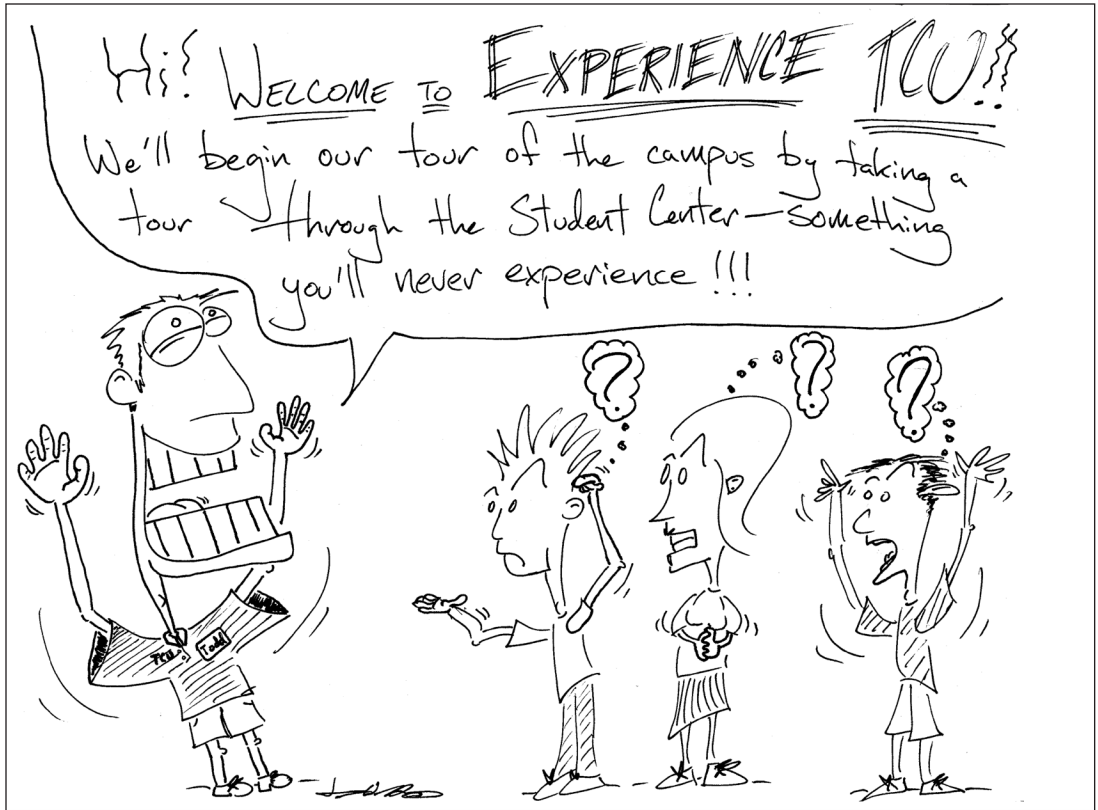 Hi! WELCOME TO EXPERIENCE TCU!!
We'll begin our tour of the campus by taking a
tour through the Student Center—something
you'll never experience!!!
?
?
?
TCU
Todd